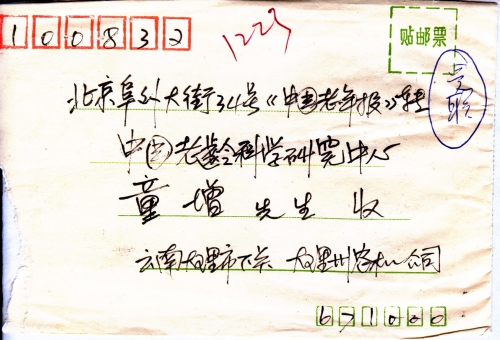 100832
1223
贴邮票
北京阜外大街34号《中国老年报》转
中国老龄科学研究中心
童增先生 收
云南大理市下关 大理州农机公司
671000